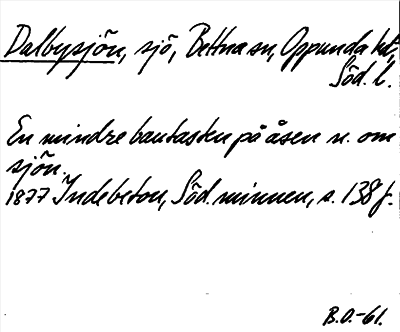 Dalbysjön, sjö, Bettna sn, Oppunda hd,
Söd. l.
En mindre bautasten på åsen n. om
sjön.
1877 Indebetou, Söd. minnen, s. 138 f.
B.O.-61.